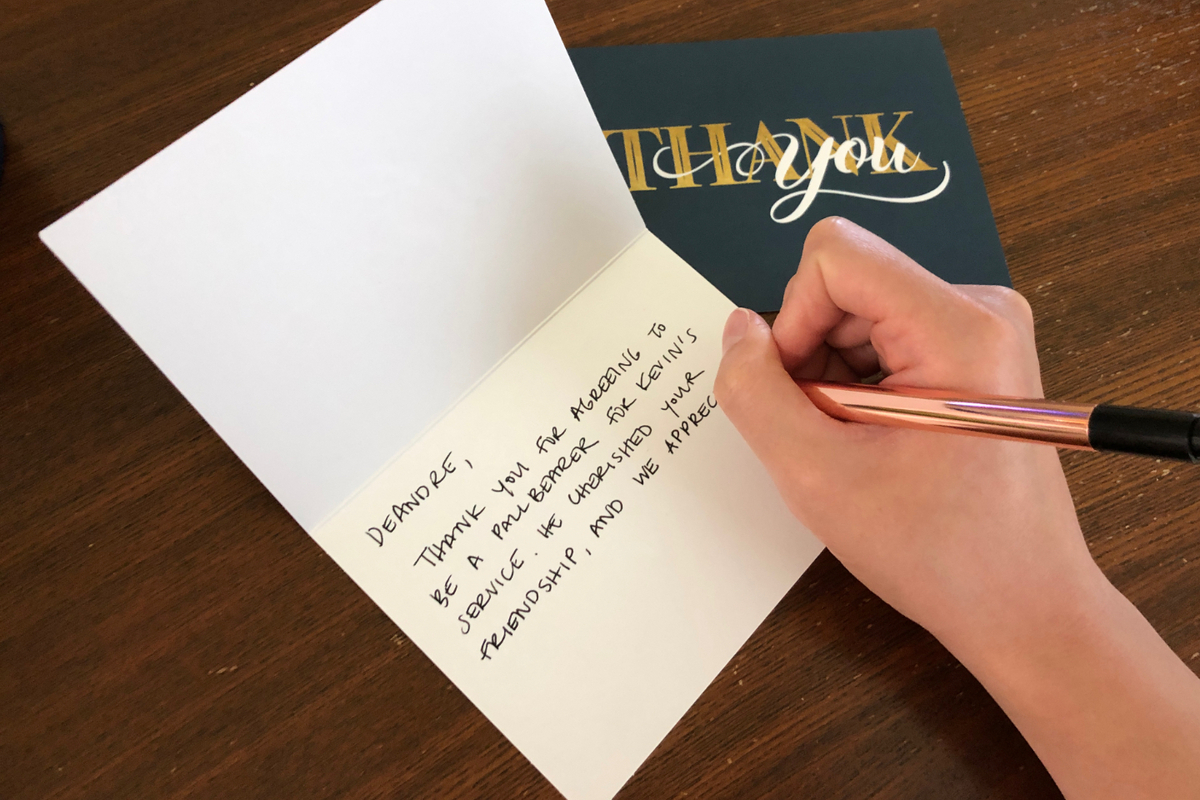 THANK
you
DEANDRE,
THANK YOU FOR AGREEING TO
BE A PALLBEARER FOR KEVIN'S
SERVICE. HE CHERISHED YOUR
FRIENDSHIP, AND WE APPREC